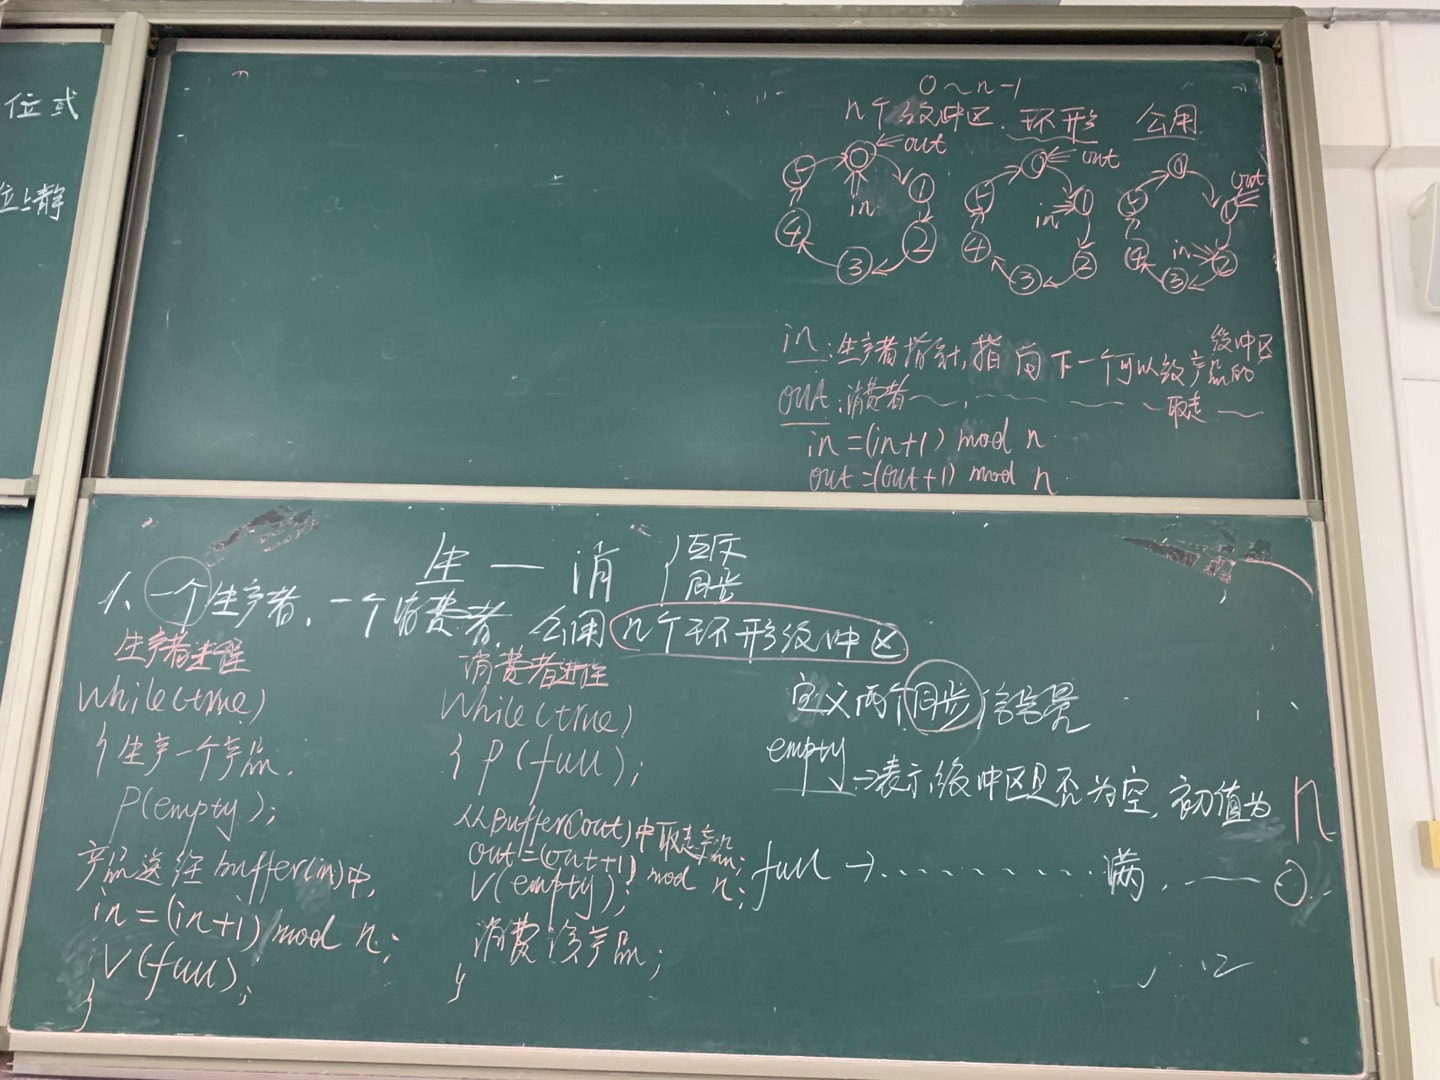 位式
位与静
0～n-1
n个缓冲区 环形 公用
0 out
1
2
3
4
5
in
0 out
1
2
3
4
5
in
0
1 out
2
3
4
5
in
in：生产者指针，指向下一个可以放产品的缓冲区
out：消费者～，～～～取走～
in=(in+1) mod n
out=(out+1) mod n
生一消 {互斥
同步
1、一个生产者，一个消费者，公用n个环形缓冲区
生产者进程
while(true)
{生产一个产品.
P(empty);
产品送往buffer(in)中,
in=(in+1) mod n;
V(full);
}
消费者进程
While(true)
{P(full);
从Buffer(out)中取走产品;
out=(out+1) mod n;
V(empty);
消费该产品;
}
定义两个同步信号量
empty→表示缓冲区是否为空,初值为n
full→…………满,——0.